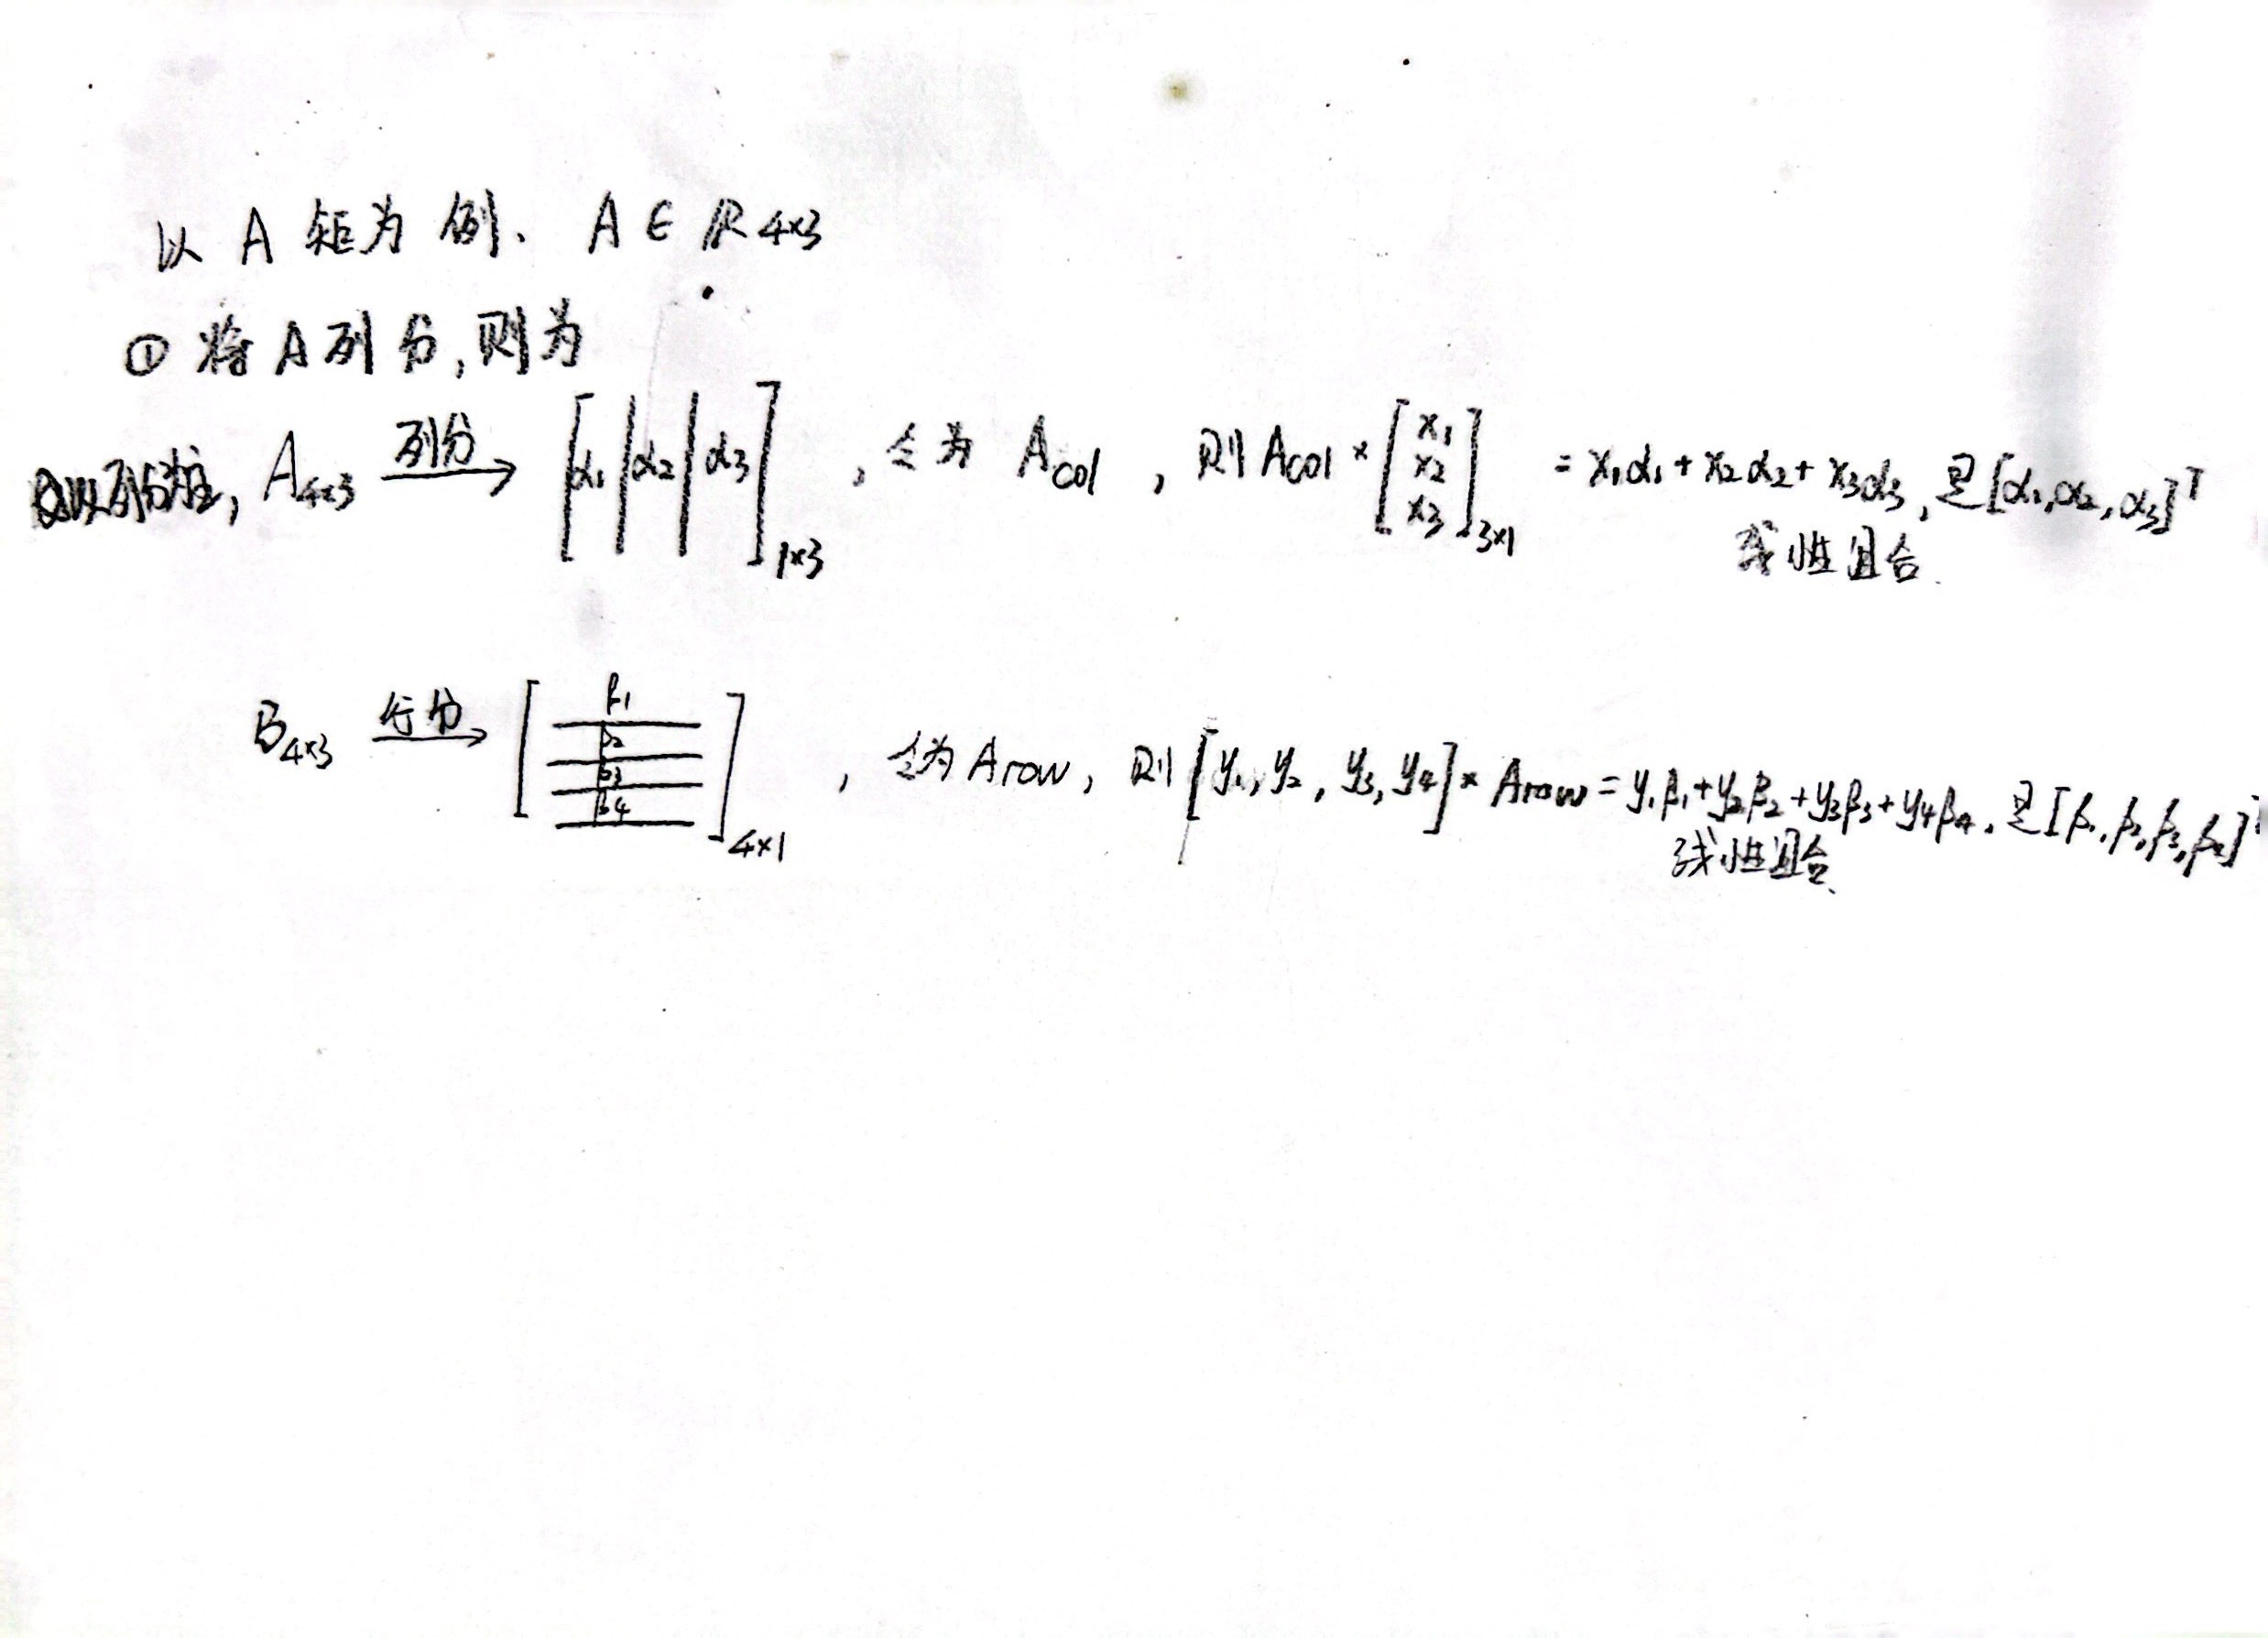 以 A 矩为例、 A ∈ R 4×3
① 将 A 列分,则为
A4×3 列分→ [α1|α2|α3]1×3 , 令为 Acol , 则 Acol × [x1 x2 x3]3×1 = x1α1 + x2α2 + x3α3, 是[α1,α2,α3]T
线性组合.
B4×3 行分→ [β1 β2 β3 β4]4×1 , 令为 Arow, 则 [y1, y2, y3, y4] × Arow = y1β1+y2β2+y3β3+y4β4, 是[β1,β2,β3,β4]
线性组合.